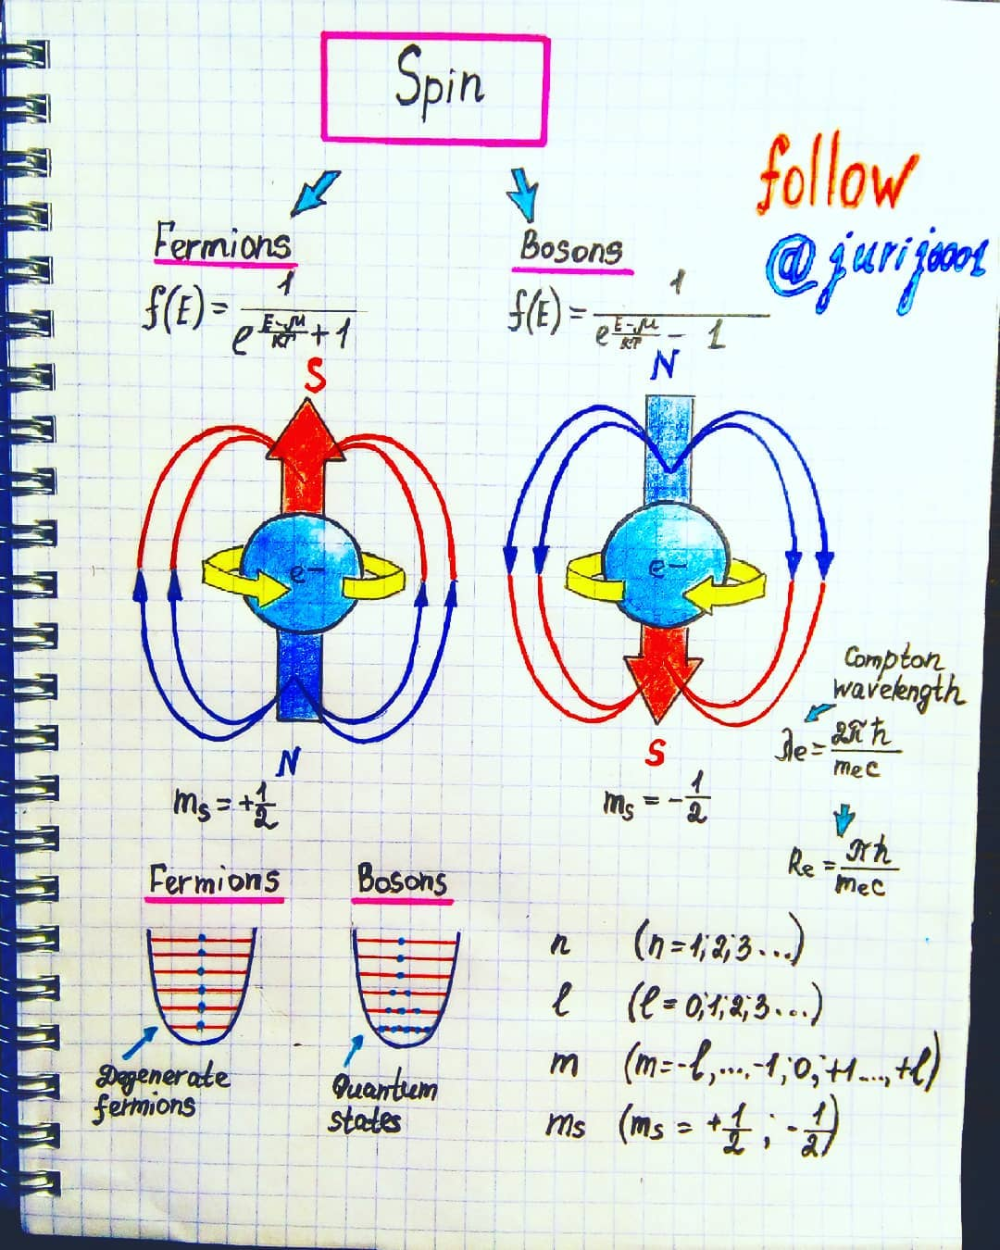 Spin
follow
@jurij0001
Fermions
f(E) = 1 / (e^((E-μ)/kT) + 1)
Bosons
f(E) = 1 / (e^((E-μ)/kT) - 1)
S
N
e-
e-
N
S
ms = +1/2
ms = -1/2
Compton
wavelength
λe = 2πħ / mec
Re = πħ / mec
Fermions
Bosons
Degenerate
fermions
Quantum
states
n (n = 1; 2; 3 ...)
l (l = 0; 1; 2; 3 ...)
m (m = -l, ... -1; 0; +1 ..., +l)
ms (ms = +1/2 ; -1/2)